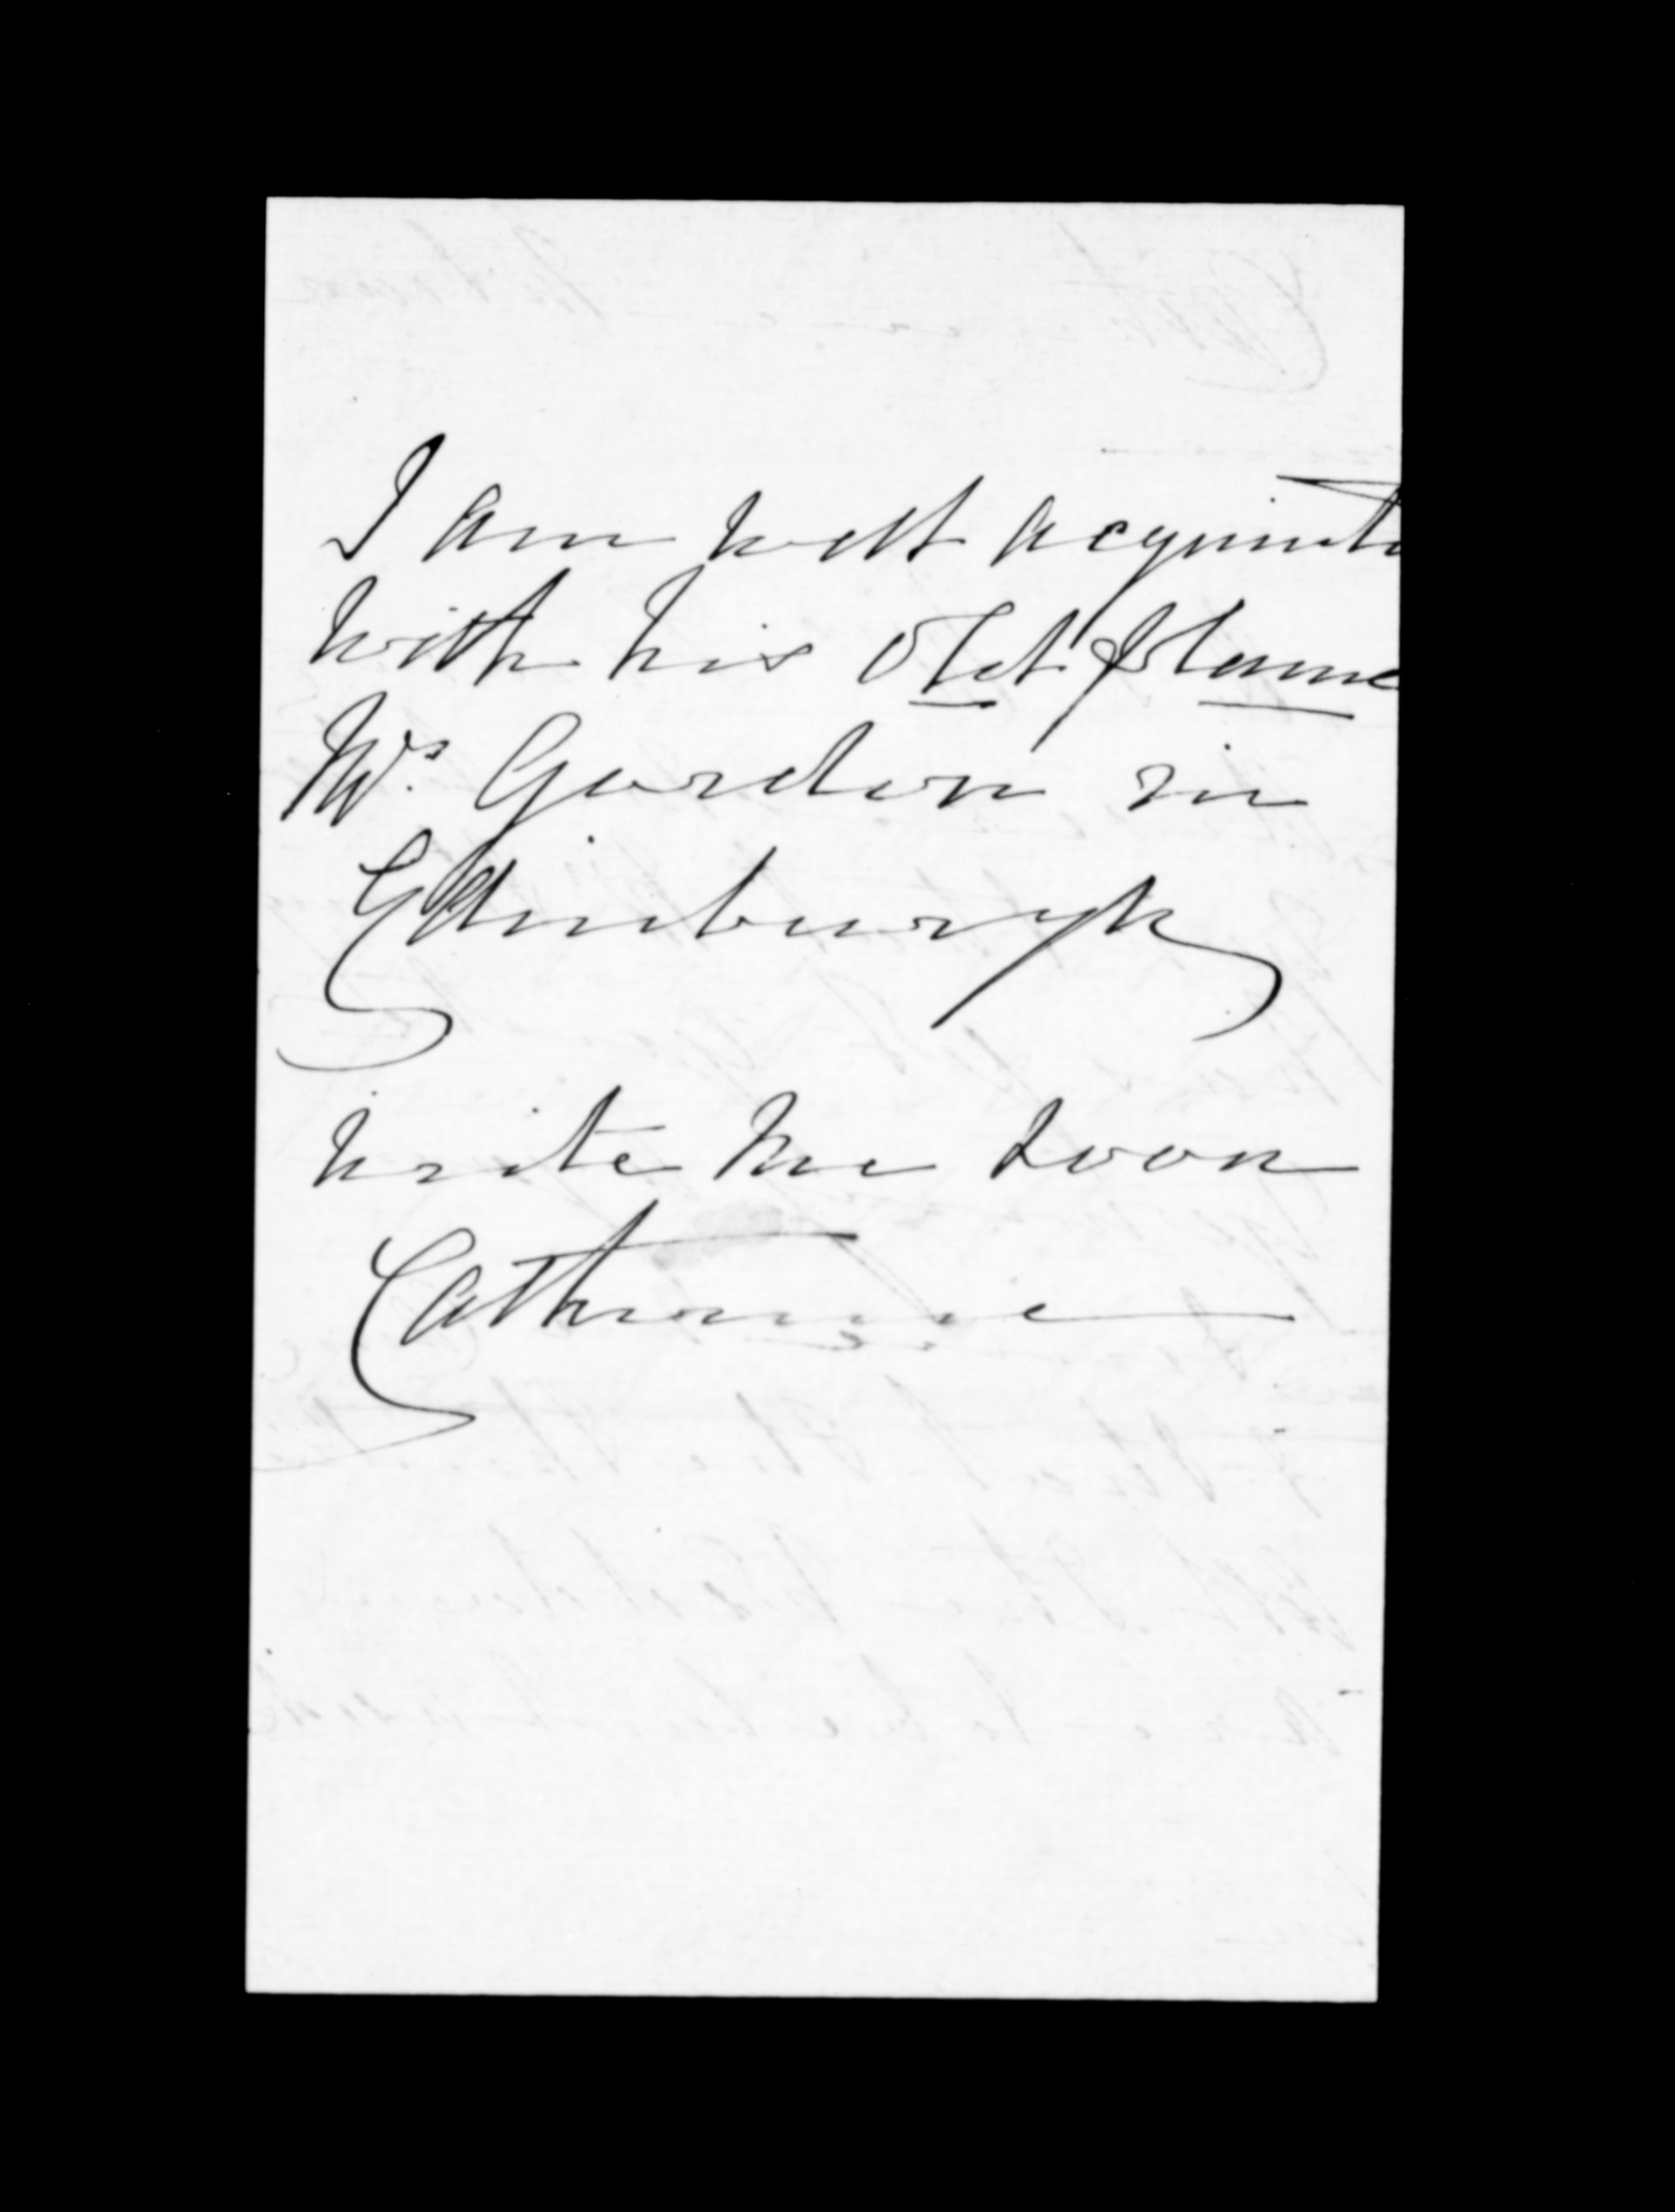 I am well acquainted
with his old flame
Mrs. Gordon in
Edinburgh
write me soon
Catherine